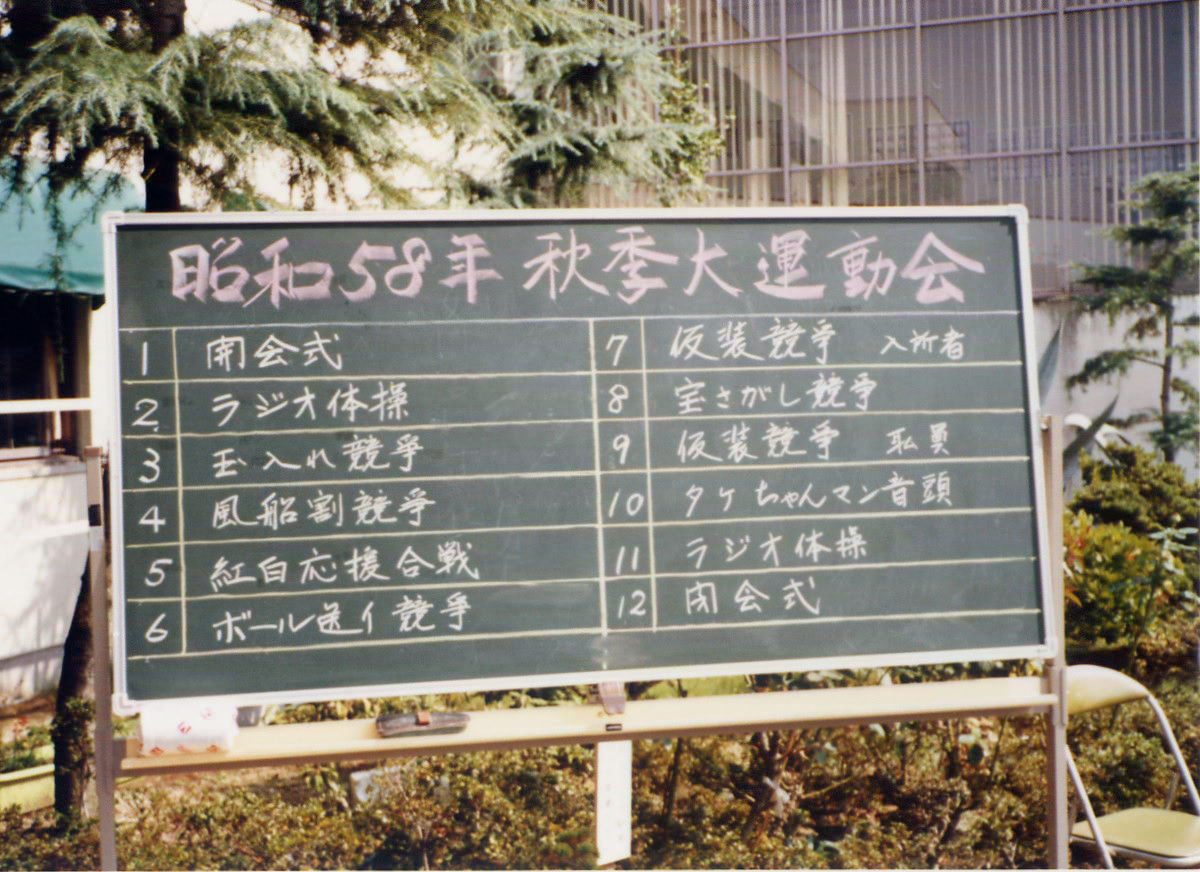 昭和58年 秋季大運動会
1 開会式
2 ラジオ体操
3 玉入れ競争
4 風船割競争
5 紅白応援合戦
6 ボール送イ競争
7 仮装競争 入所者
8 宝さがし競争
9 仮装競争 耺員
10 タケちゃんマン音頭
11 ラジオ体操
12 閉会式